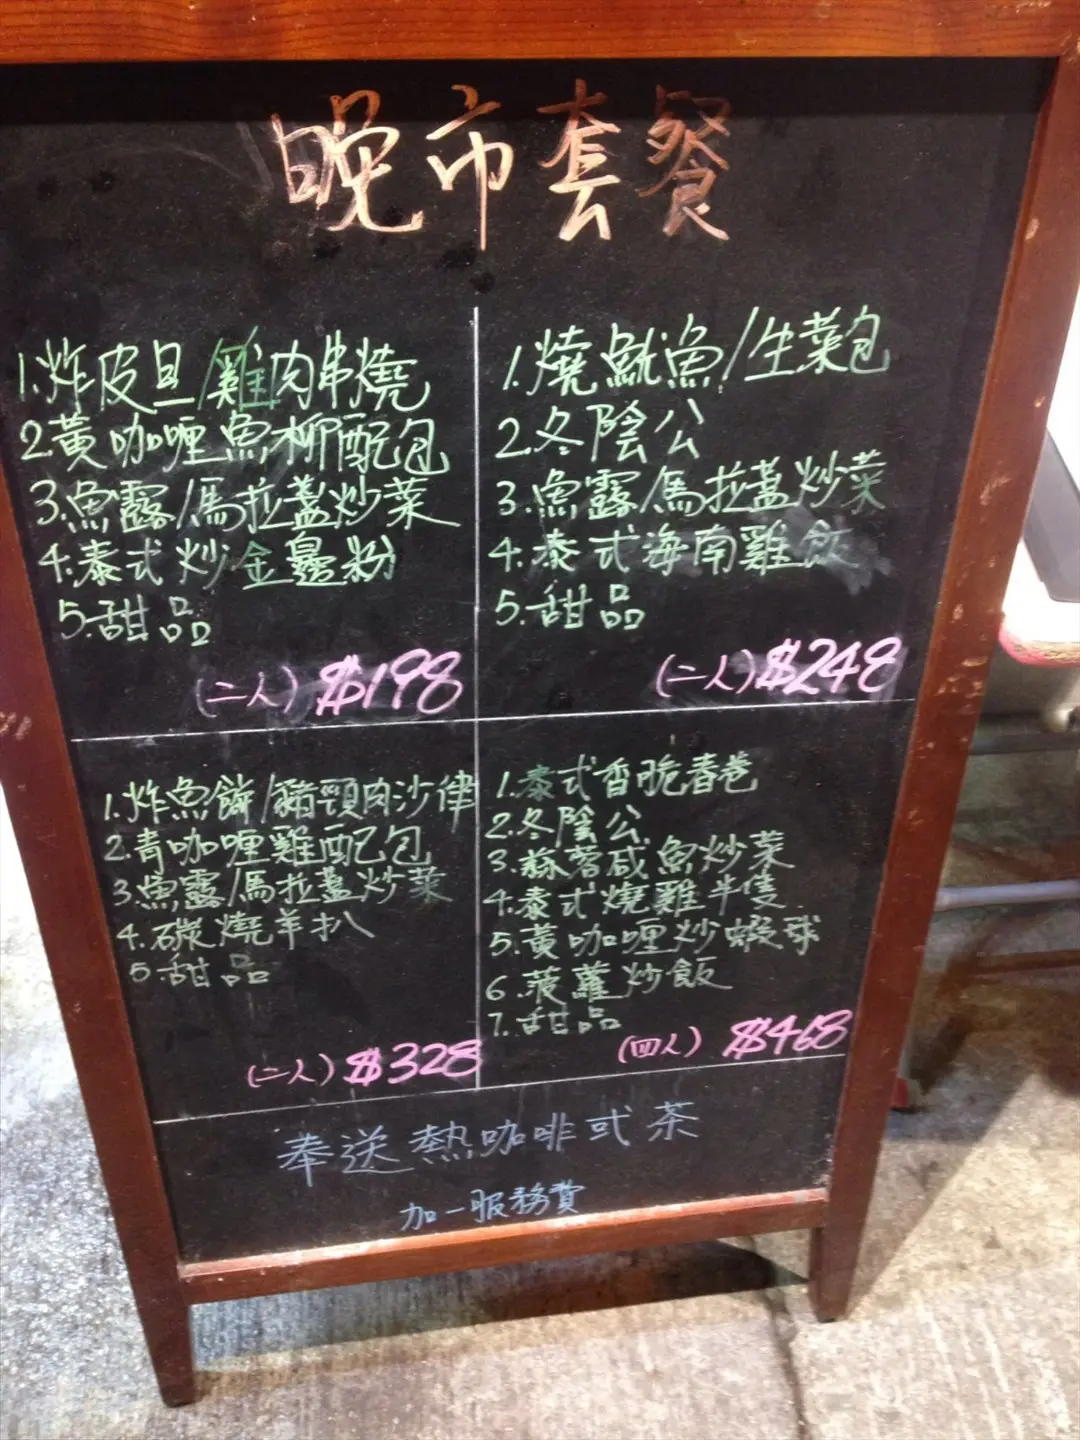 晚市套餐
1.炸皮旦/雞肉串燒
2.黃咖喱魚柳配包
3.魚露/馬拉盞炒菜
4.泰式炒金邊粉
5.甜品
(二人) $198
1.燒魷魚/生菜包
2.冬陰公
3.魚露/馬拉盞炒菜
4.泰式海南雞飯
5.甜品
(二人) $248
1.炸魚餅/豬頸肉沙律
2.青咖喱雞配包
3.魚露/馬拉盞炒菜
4.碳燒羊扒
5.甜品
(二人) $328
1.泰式香脆春卷
2.冬陰公
3.蒜蓉咸魚炒菜
4.泰式燒雞半隻
5.黃咖喱炒蝦球
6.菠蘿炒飯
7.甜品
(四人) $468
奉送熱咖啡或茶
加一服務費